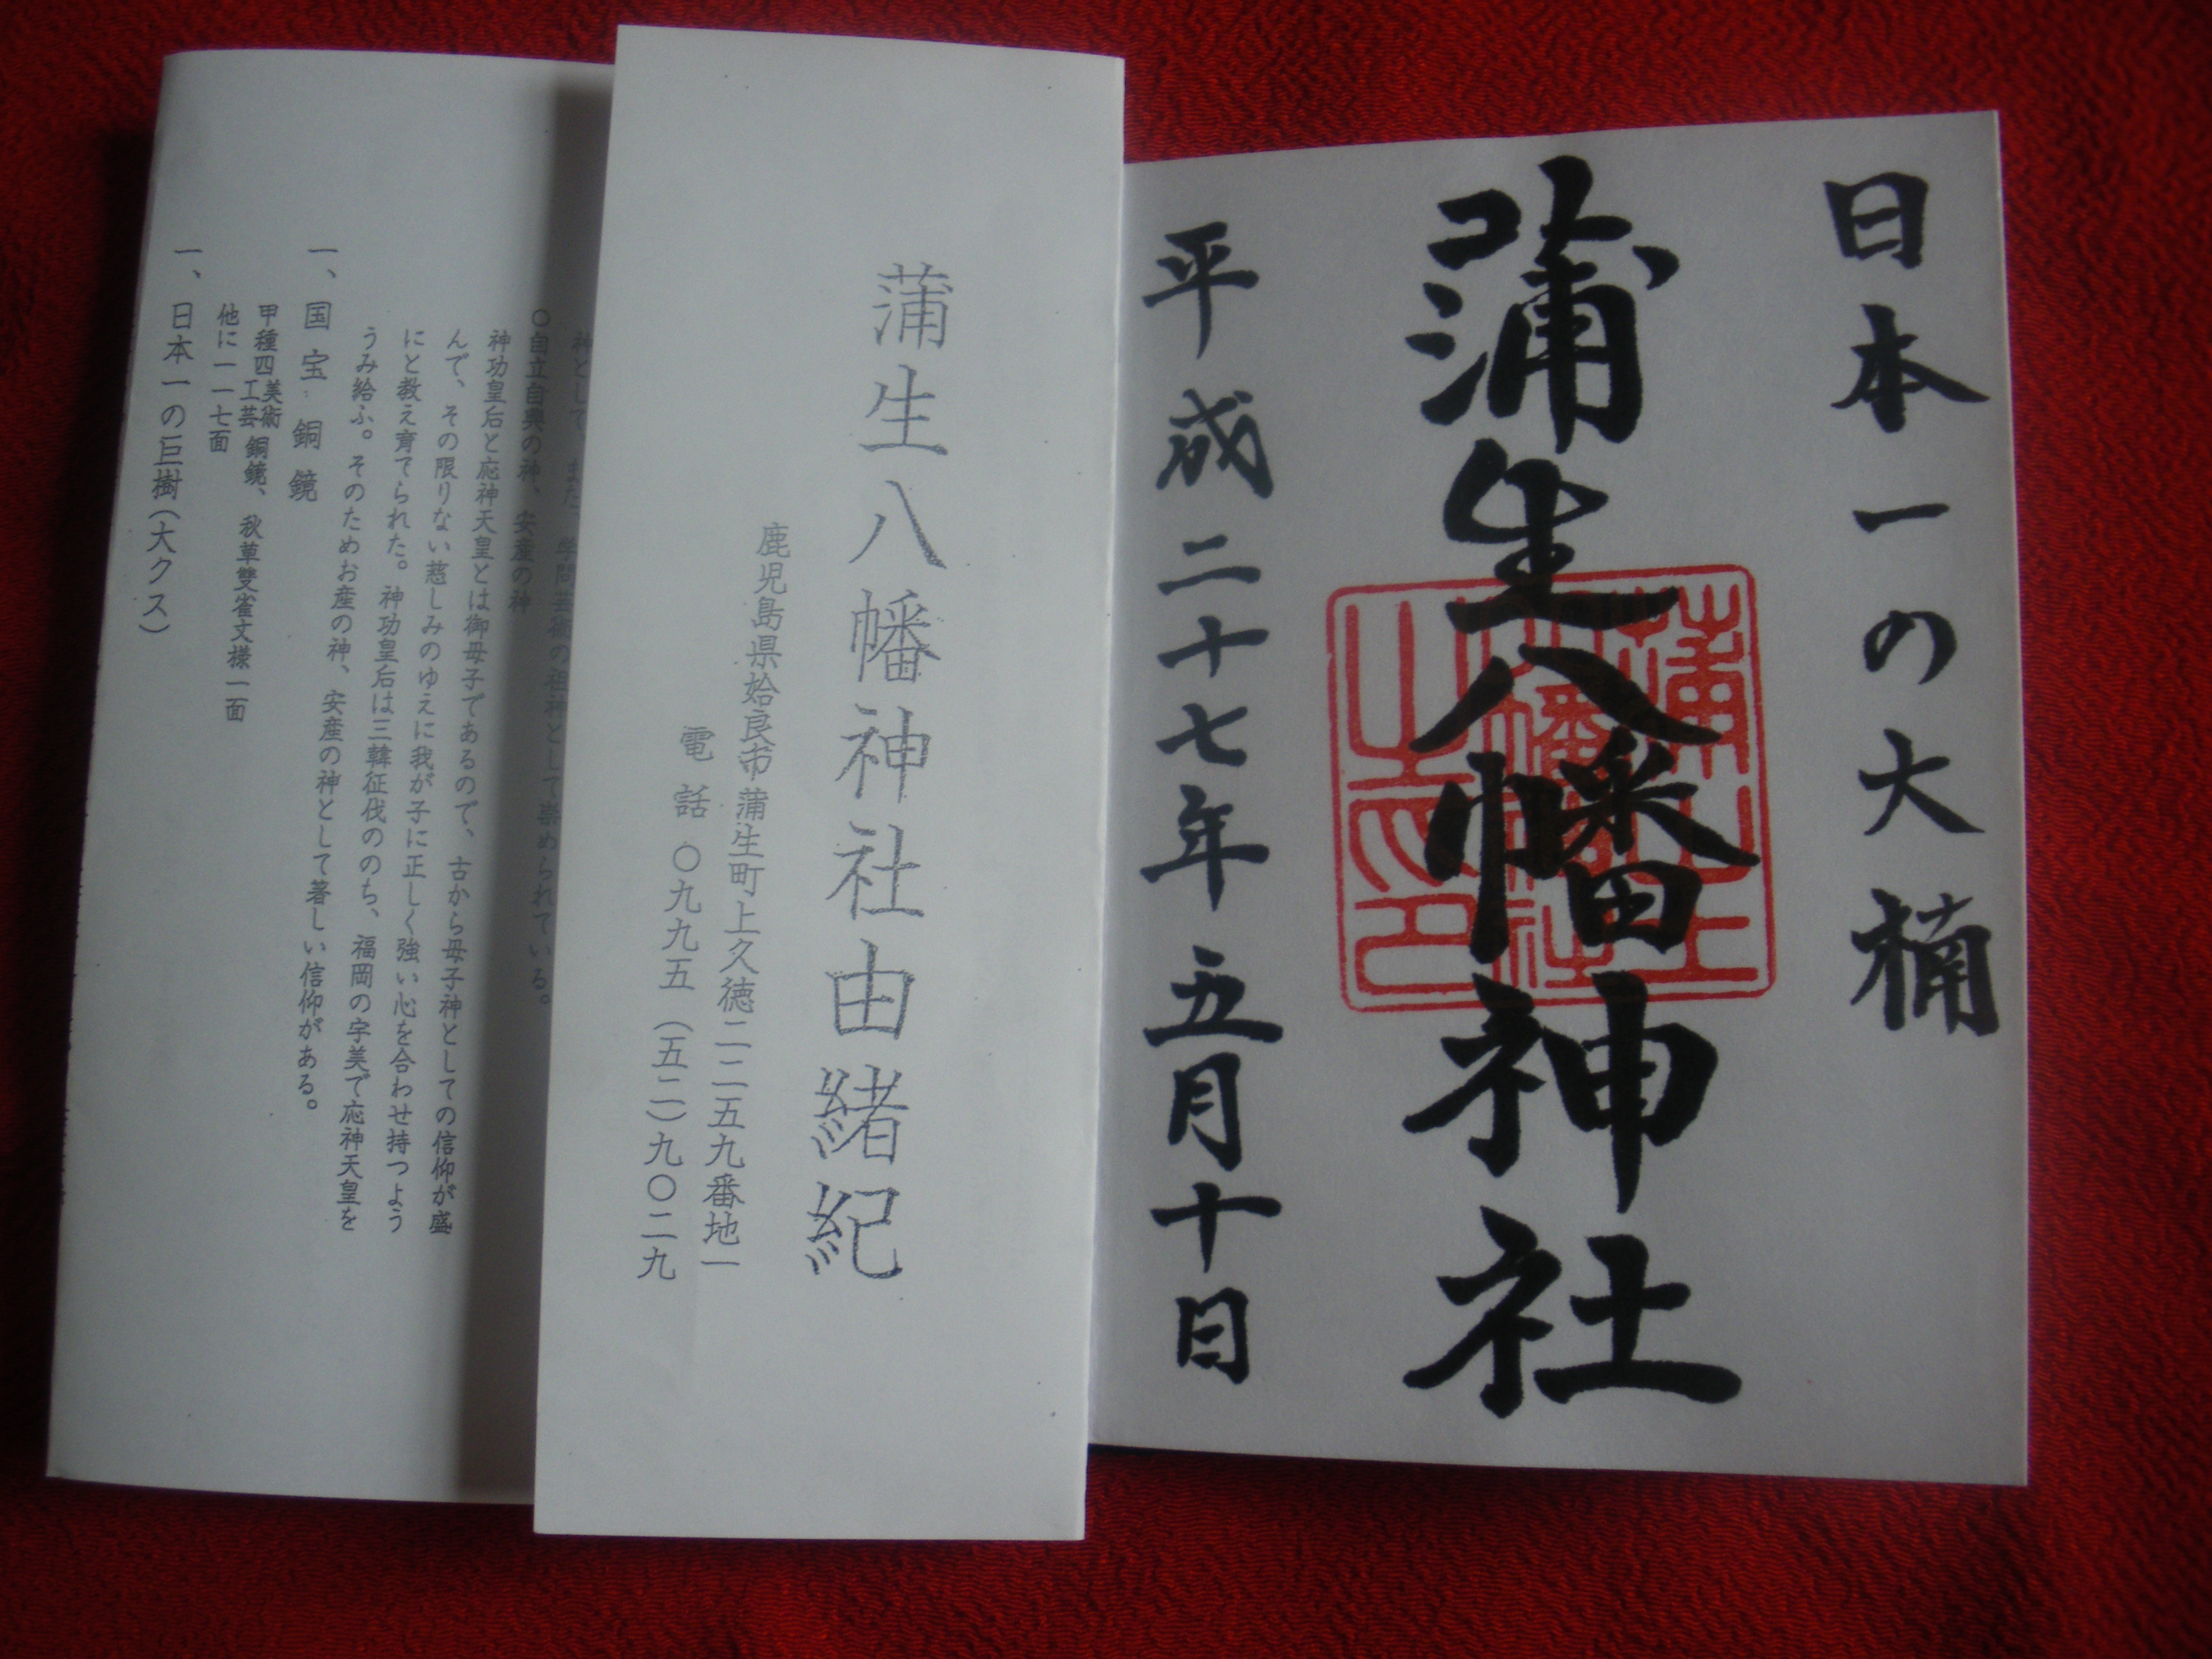 日本一の大楠
蒲生八幡神社
平成二十七年五月十日
蒲生八幡神社由緒紀
鹿児島県姶良市蒲生町上久徳二二五九番地一
電話 〇九九五（五二）九〇二九
神として、また、学問芸術の祖神として崇められている。
〇自立自興の神、安産の神
神功皇后と応神天皇とは御母子であるので、古から母子神としての信仰が盛
んで、その限りない慈しみのゆえに我が子に正しく強い心を合わせ持つよう
にと教え育てられた。神功皇后は三韓征伐ののち、福岡の宇美で応神天皇を
うみ給ふ。そのためお産の神、安産の神として著しい信仰がある。
一、国宝 銅鏡
甲種四美術工芸銅鏡、秋草雙雀文様一面
他に一一七面
一、日本一の巨樹（大クス）